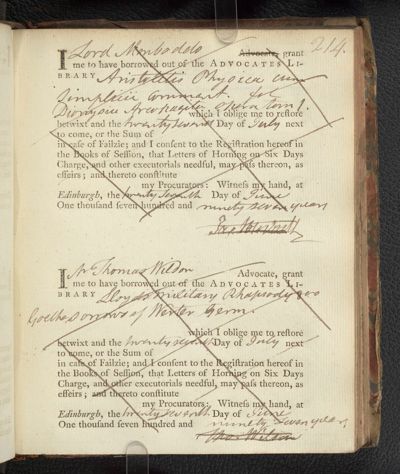 214.
I Lord Monboddo Advocate, grant
me to have borrowed out of the ADVOCATES LI-
BRARY Aristotelis Physica cum
Simplicii Comment. fol.
Dionysii Areopagitae opera tom 1.
which I oblige me to reſtore
betwixt and the twenty seventh Day of July next
to come, or the Sum of
in caſe of Failzie; and I conſent to the Regiſtration hereof in
the Books of Seſſion, that Letters of Horning on Six Days
Charge, and other executorials needful, may paſs thereon, as
effeirs; and thereto conſtitute
my Procurators: Witneſs my hand, at
Edinburgh, the twenty seventh Day of June
One thouſand ſeven hundred and ninety seven years
I Mr Thomas Wilson Advocate, grant
me to have borrowed out of the ADVOCATES LI-
BRARY Lloyds military Rhapsody
Goethe Sorrows of Werter Germ.
which I oblige me to reſtore
betwixt and the twenty seventh Day of July next
to come, or the Sum of
in caſe of Failzie; and I conſent to the Regiſtration hereof in
the Books of Seſſion, that Letters of Horning on Six Days
Charge, and other executorials needful, may paſs thereon, as
effeirs; and thereto conſtitute
my Procurators: Witneſs my hand, at
Edinburgh, the twenty seventh Day of June
One thouſand ſeven hundred and ninety seven years
Thos Wilson